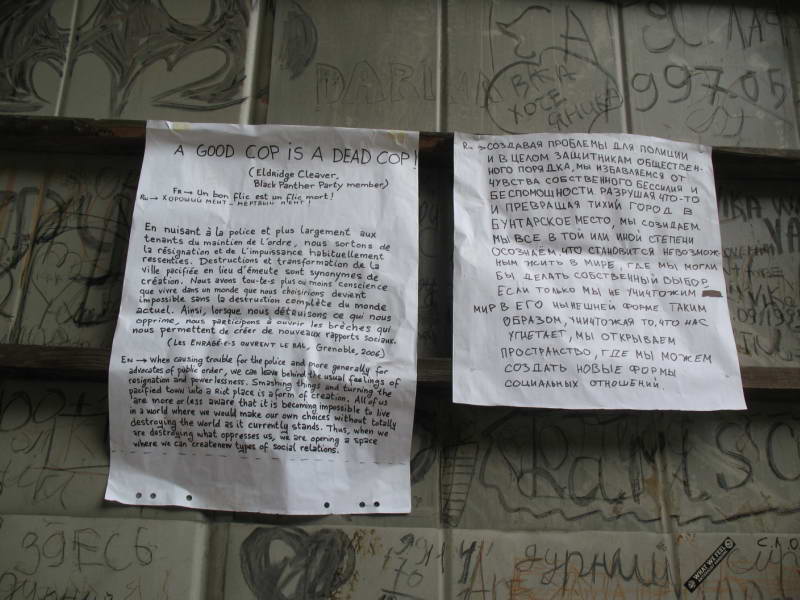 A GOOD COP iS A DEAD COP!
(Eldridge Cleaver,
Black Panther Party member)
FR → Un bon flic est un flic mort!
Ru → ХОРОШИЙ МЕНТ - МЕРТВЫЙ МЕНТ!
En nuisant à la police et plus largement aux
tenants du maintien de l'ordre, nous sortons de
la résignation et de l'impuissance habituellement
ressenties. Destructions et transformation de la
ville pacifiée en lieu d'émeute sont synonymes de
création. Nous avons tou-te-s plus ou moins conscience
que vivre dans un monde que nous choisirions devient
impossible sans la destruction complète du monde
actuel. Ainsi, lorsque nous détruisons ce qui nous
opprime, nous participons à ouvrir les brèches qui
nous permettent de créer de nouveaux rapports sociaux.
(LES ENRAGÉ-E-S OUVRENT LE BAL, Grenoble, 2006)
EN → When causing trouble for the police and more generally for
advocates of public order, we can leave behind the usual feelings of
resignation and powerlessness. Smashing things and turning the
pacified town into a riot place is a form of creation. All of us
are more or less aware that it is becoming impossible to live
in a world where we would make our own choices without totally
destroying the world as it currently stands. Thus, when we
are destroying what oppresses us, we are opening a space
where we can create new types of social relations.
Ru → СОЗДАВАЯ ПРОБЛЕМЫ ДЛЯ ПОЛИЦИИ
И В ЦЕЛОМ ЗАЩИТНИКАМ ОБЩЕСТВЕН-
НОГО ПОРЯДКА, МЫ ИЗБАВЛЯЕМСЯ ОТ
ЧУВСТВА СОБСТВЕННОГО БЕССИЛИЯ И
БЕСПОМОЩНОСТИ. РАЗРУШАЯ ЧТО-ТО
И ПРЕВРАЩАЯ ТИХИЙ ГОРОД В
БУНТАРСКОЕ МЕСТО, МЫ СОЗИДАЕМ.
МЫ ВСЕ В ТОЙ ИЛИ ИНОЙ СТЕПЕНИ
ОСОЗНАЁМ, ЧТО СТАНОВИТСЯ НЕВОЗМОЖ-
НЫМ ЖИТЬ В МИРЕ, ГДЕ МЫ МОГЛИ
БЫ ДЕЛАТЬ СОБСТВЕННЫЙ ВЫБОР,
ЕСЛИ ТОЛЬКО МЫ НЕ УНИЧТОЖИМ
МИР В ЕГО НЫНЕШНЕЙ ФОРМЕ. ТАКИМ
ОБРАЗОМ, УНИЧТОЖАЯ ТО, ЧТО НАС
УГНЕТАЕТ, МЫ ОТКРЫВАЕМ
ПРОСТРАНСТВО, ГДЕ МЫ МОЖЕМ
СОЗДАТЬ НОВЫЕ ФОРМЫ
СОЦИАЛЬНЫХ ОТНОШЕНИЙ.
ВІКА
ХОЧЕ
99705
ЗДЕСЬ
дурний
WHAT WE FEEL